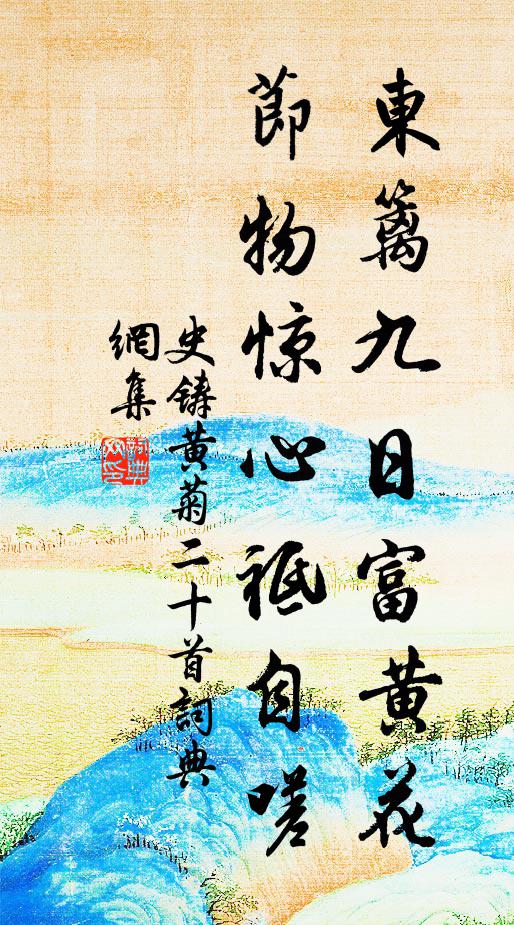 東籬九日富黄花
節物惊心祗自嗟
史鋳黄菊二十首詞典
網集